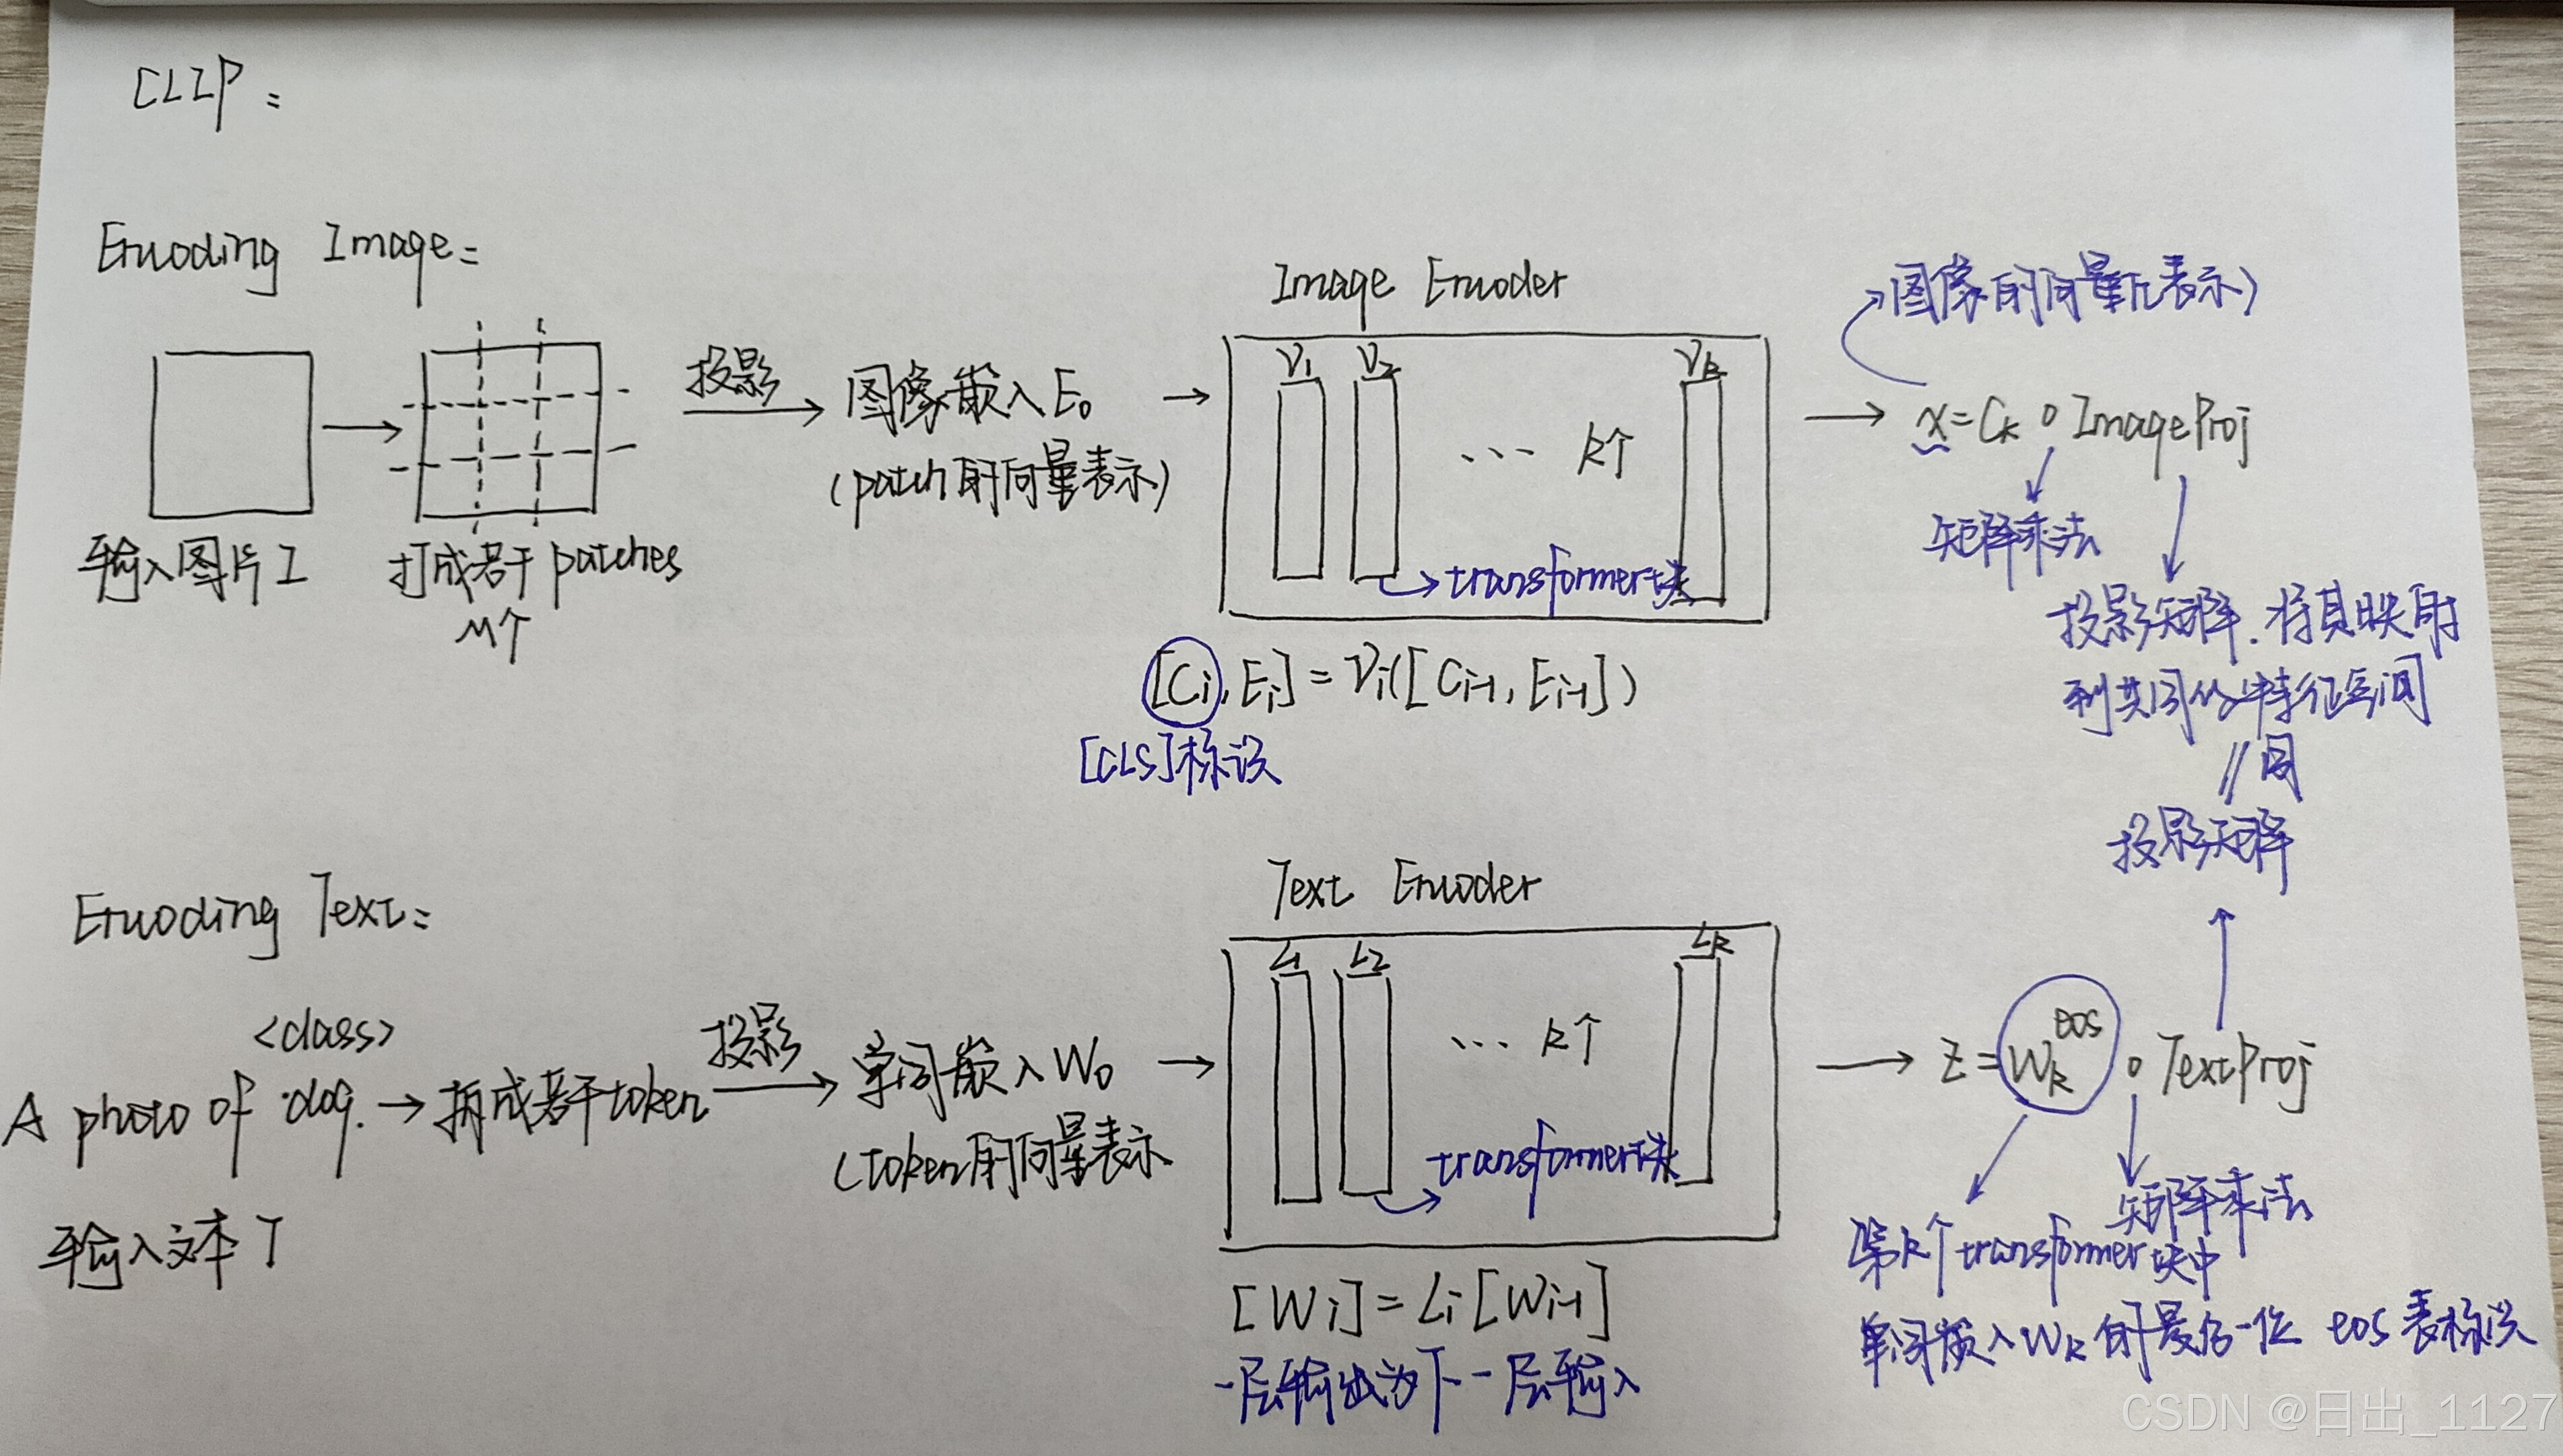 CLIP:
Encoding Image:
输入图片I
打成若干patches
M个
投影
图像嵌入E₀
(patch的向量表示)
Image Encoder
V₁ V₂ Vₖ
... k个
transformer块
[Cᵢ, Eᵢ] = Vᵢ([Cᵢ₋₁, Eᵢ₋₁])
[CLS]标识
图像的向量表示)
x = Cₖ ∘ ImageProj
矩阵乘法
投影矩阵.将其映射
到共同的特征空间
同
投影矩阵
Encoding Text:
<class>
A photo of dog.
输入文本T
拆成若干token
投影
单词嵌入W₀
(token的向量表示
Text Encoder
L₁ L₂ Lₖ
... k个
transformer块
[Wᵢ] = Lᵢ[Wᵢ₋₁]
一层输出为下一层输入
z = Wₖᵉᵒˢ ∘ TextProj
矩阵乘法
第k个transformer块中
单词嵌入Wₖ的最后一位 eos表标识
CSDN @日出_1127